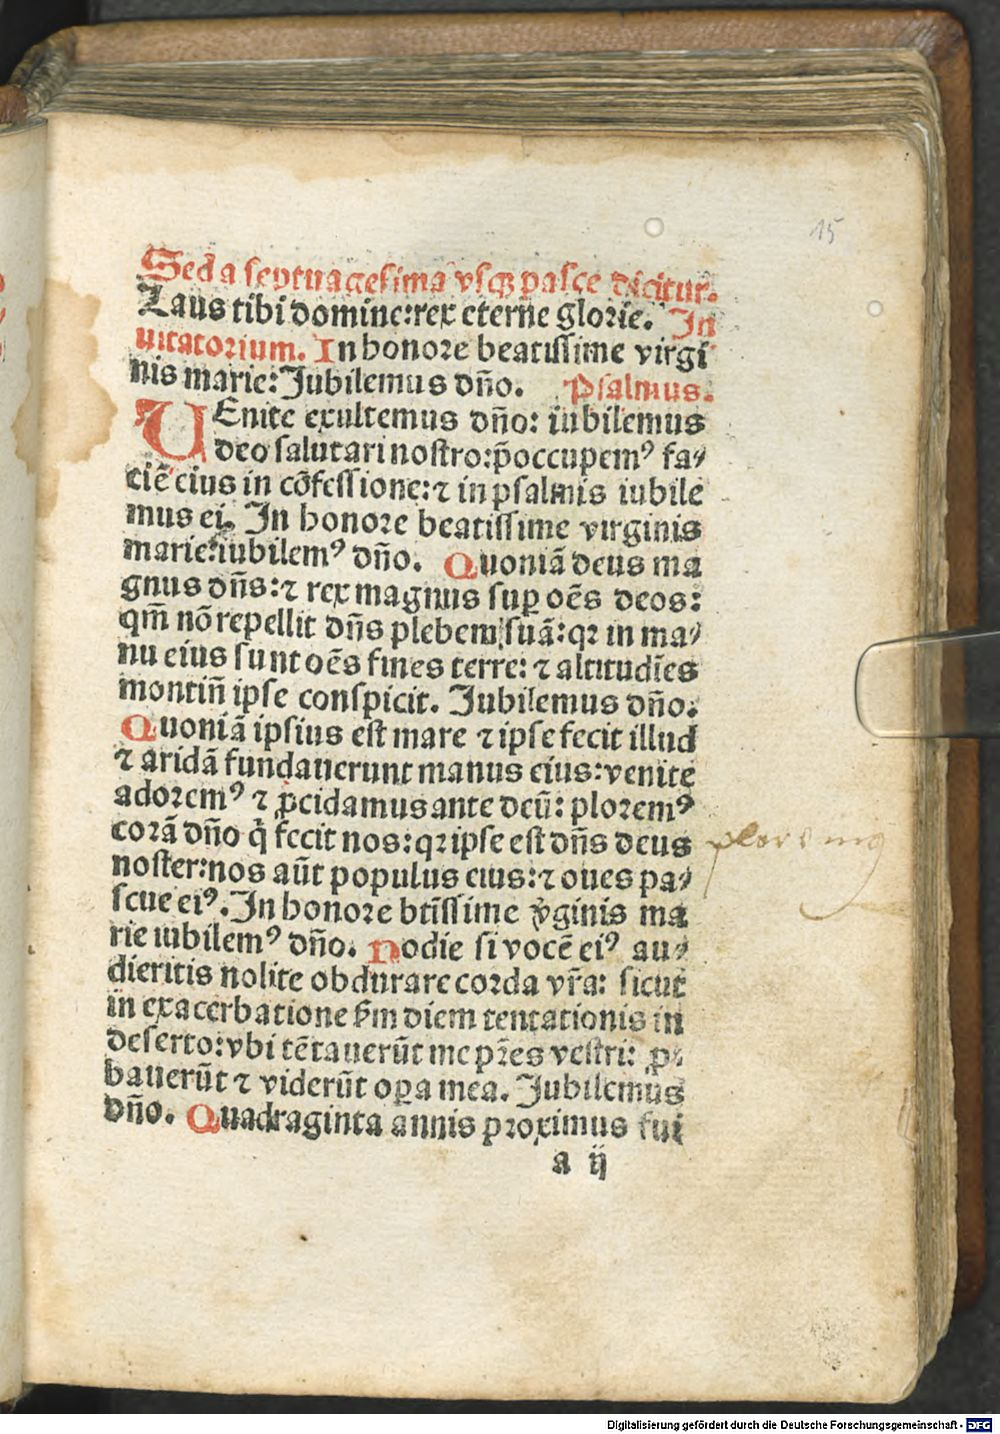 15
Sed a septuagesima vsqꝫ pasce dicitur.
Laus tibi domine:rex eterne glorie. In
uitatorium. In honore beatissime virgi
nis marie:Jubilemus dño. Psalmus.
UEnite exultemus dño: iubilemus
deo salutari nostro:p̄occupemꝰ fa⸗
ciē eius in cōfessione:⁊ in psalmis iubile
mus ei. In honore beatissime virginis
marie:iubilemꝰ dño. Quoniā deus ma
gnus dñs:⁊ rex magnus suꝑ oēs deos:
qm̄ nō repellit dñs plebem suā:qꝛ in ma⸗
nu eius sunt oēs fines terre: ⁊ altitudīes
montiū ipse conspicit. Jubilemus dño.
Quoniā ipsius est mare ⁊ ipse fecit illud
⁊ aridā fundauerunt manus eius:venite
adoremꝰ ⁊ ꝓcidamus ante deū: ploremꝰ
corā dño q̇ fecit nos:qꝛ ipse est dñs deus
noster:nos aūt populus eius:⁊ oues pa⸗
scue eiꝰ. In honore btīssime v̾ginis ma
rie iubilemꝰ dño. hodie si vocē eiꝰ au⸗
dieritis nolite obdurare corda vr̄a: sicut
in exacerbatione ẜm diem tentationis in
deserto:vbi tētauerūt me pr̄es vestri: ꝓ⸗
bauerūt ⁊ viderūt oꝑa mea. Jubilemus
dño. Quadraginta annis proximus fui
a ij
ploremꝰ
Digitalisierung gefördert durch die Deutsche Forschungsgemeinschaft - DFG